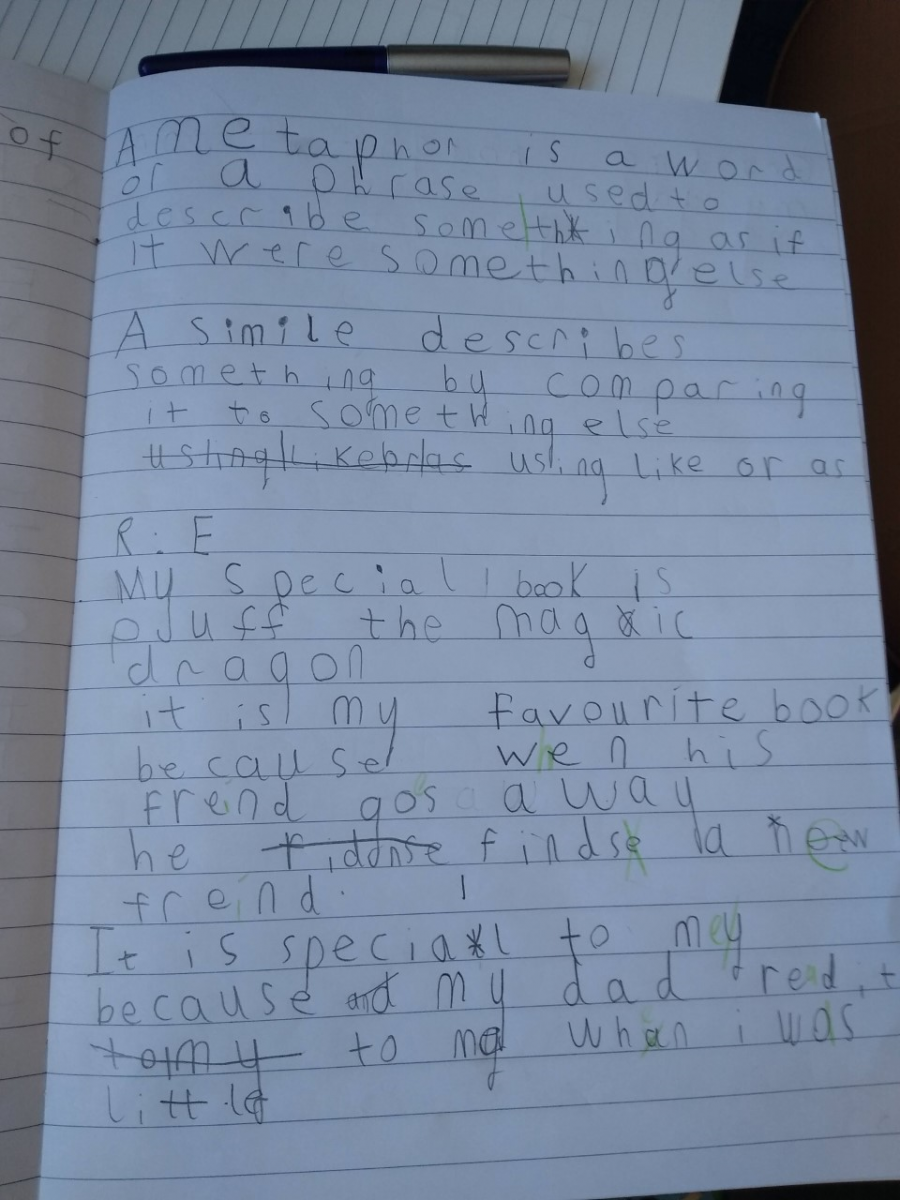 of
A Metaphor is a word
or a phrase used to
describe something as if
it were something else
A simile describes
something by comparing
it to something else
ustinglikeoras using like or as
R.E
My special book is
puff the magic
dragon
it is my favourite book
because when his
freind gos away
he finds a new
freind.
It is special to me
because my dad read it
to my to me when i was
little